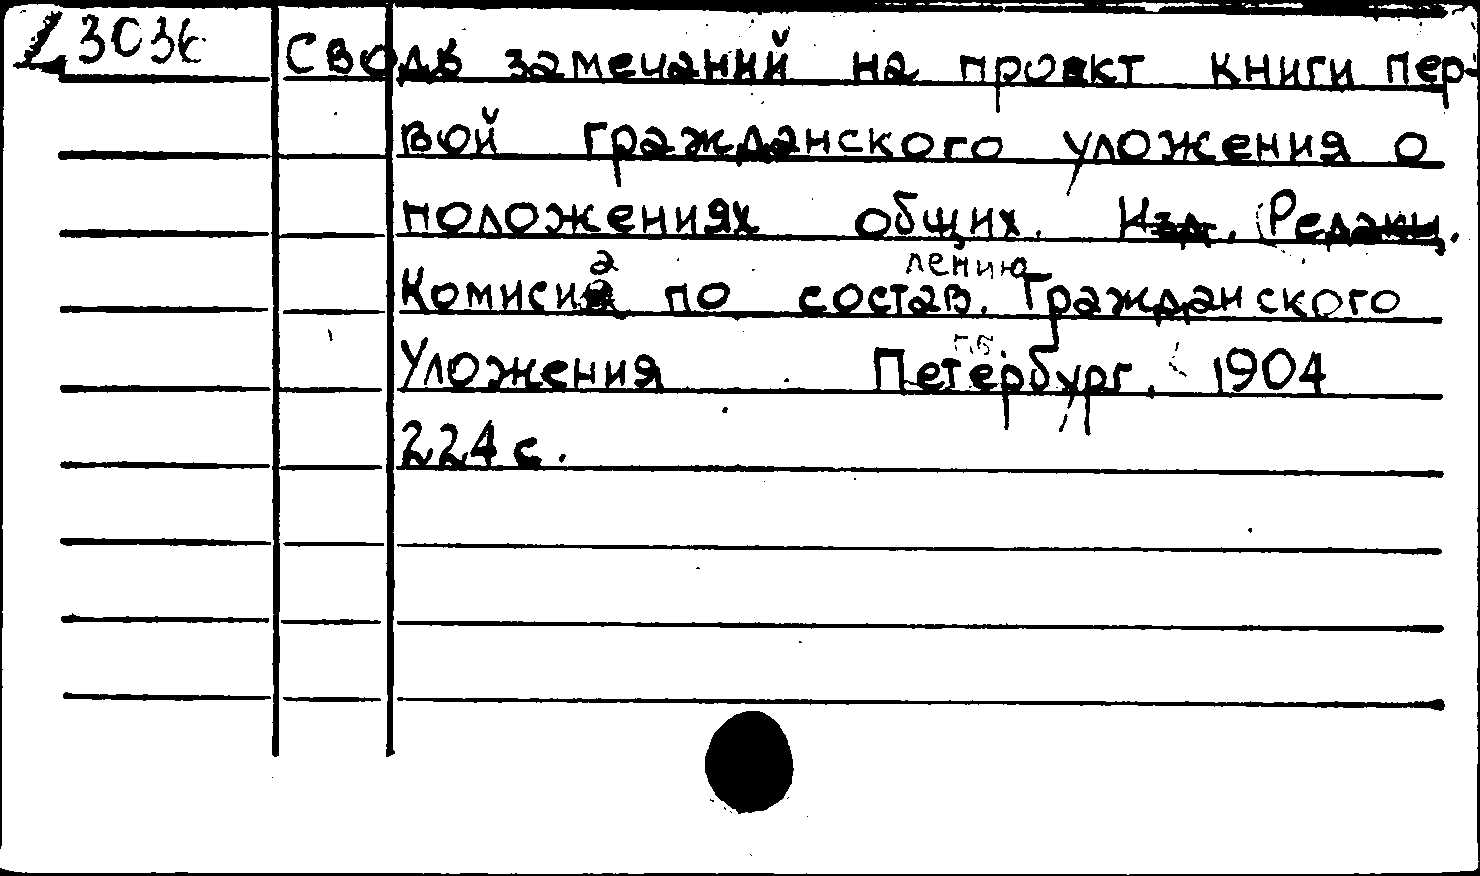 L 3036
Сводъ замечаний на проект книги пер-
вой гражданского уложения о
положениях общих. Изд. Редакц.
Комисиа по состав. Гражданского
лению
Уложения Петербург. 1904
п.б.
224 с.